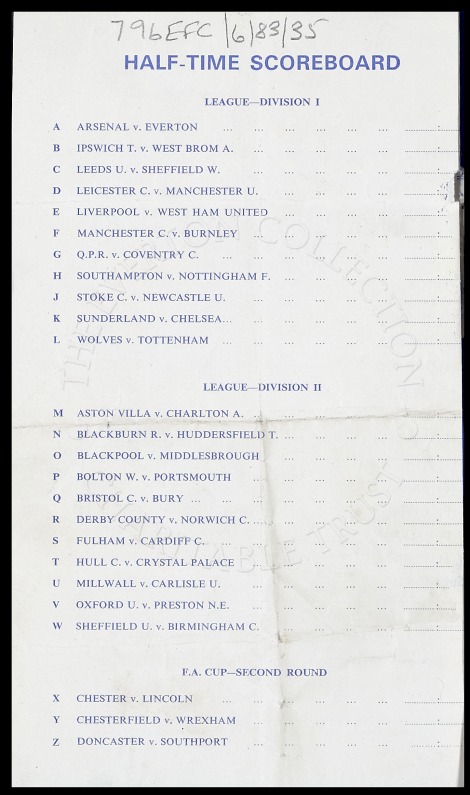 796EFC/6/83/35
HALF-TIME SCOREBOARD
LEAGUE—DIVISION I
A ARSENAL v. EVERTON ... ... ... ... ... ............:......
B IPSWICH T. v. WEST BROM A. ... ... ... ... ............:......
C LEEDS U. v. SHEFFIELD W. ... ... ... ... ............:......
D LEICESTER C. v. MANCHESTER U. ... ... ... ............:......
E LIVERPOOL v. WEST HAM UNITED ... ... ... ............:......
F MANCHESTER C. v. BURNLEY ... ... ... ... ............:......
G Q.P.R. v. COVENTRY C. ... ... ... ... ... ............:......
H SOUTHAMPTON v. NOTTINGHAM F. ... ... ... ............:......
J STOKE C. v. NEWCASTLE U. ... ... ... ... ............:......
K SUNDERLAND v. CHELSEA... ... ... ... ... ............:......
L WOLVES v. TOTTENHAM ... ... ... ... ... ............:......
LEAGUE—DIVISION II
M ASTON VILLA v. CHARLTON A. ... ... ... ... ............:......
N BLACKBURN R. v. HUDDERSFIELD T. ... ... ... ............:......
O BLACKPOOL v. MIDDLESBROUGH ... ... ... ............:......
P BOLTON W. v. PORTSMOUTH ... ... ... ... ............:......
Q BRISTOL C. v. BURY ... ... ... ... ... ... ............:......
R DERBY COUNTY v. NORWICH C. ... ... ... ... ............:......
S FULHAM v. CARDIFF C. ... ... ... ... ... ............:......
T HULL C. v. CRYSTAL PALACE ... ... ... ... ............:......
U MILLWALL v. CARLISLE U. ... ... ... ... ............:......
V OXFORD U. v. PRESTON N.E. ... ... ... ... ............:......
W SHEFFIELD U. v. BIRMINGHAM C. ... ... ... ............:......
F.A. CUP—SECOND ROUND
X CHESTER v. LINCOLN ... ... ... ... ... ............:......
Y CHESTERFIELD v. WREXHAM ... ... ... ... ............:......
Z DONCASTER v. SOUTHPORT ... ... ... ... ............:......
THE EVERTON COLLECTION
CHARITABLE TRUST